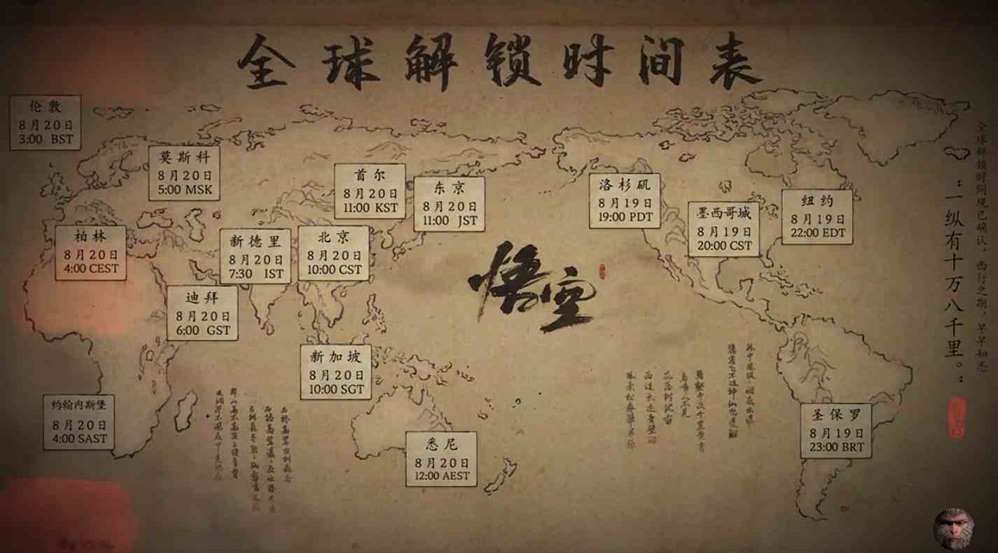 全球解锁时间表
伦敦
8月20日
3:00 BST
莫斯科
8月20日
5:00 MSK
首尔
8月20日
11:00 KST
东京
8月20日
11:00 JST
洛杉矶
8月19日
19:00 PDT
墨西哥城
8月19日
20:00 CST
纽约
8月19日
22:00 EDT
柏林
8月20日
4:00 CEST
新德里
8月20日
7:30 IST
北京
8月20日
10:00 CST
迪拜
8月20日
6:00 GST
悟空
新加坡
8月20日
10:00 SGT
约翰内斯堡
8月20日
4:00 SAST
悉尼
8月20日
12:00 AEST
圣保罗
8月19日
23:00 BRT
全球解锁时间现已确认，西行之期，早早知悉
：一纵有十万八千里。：